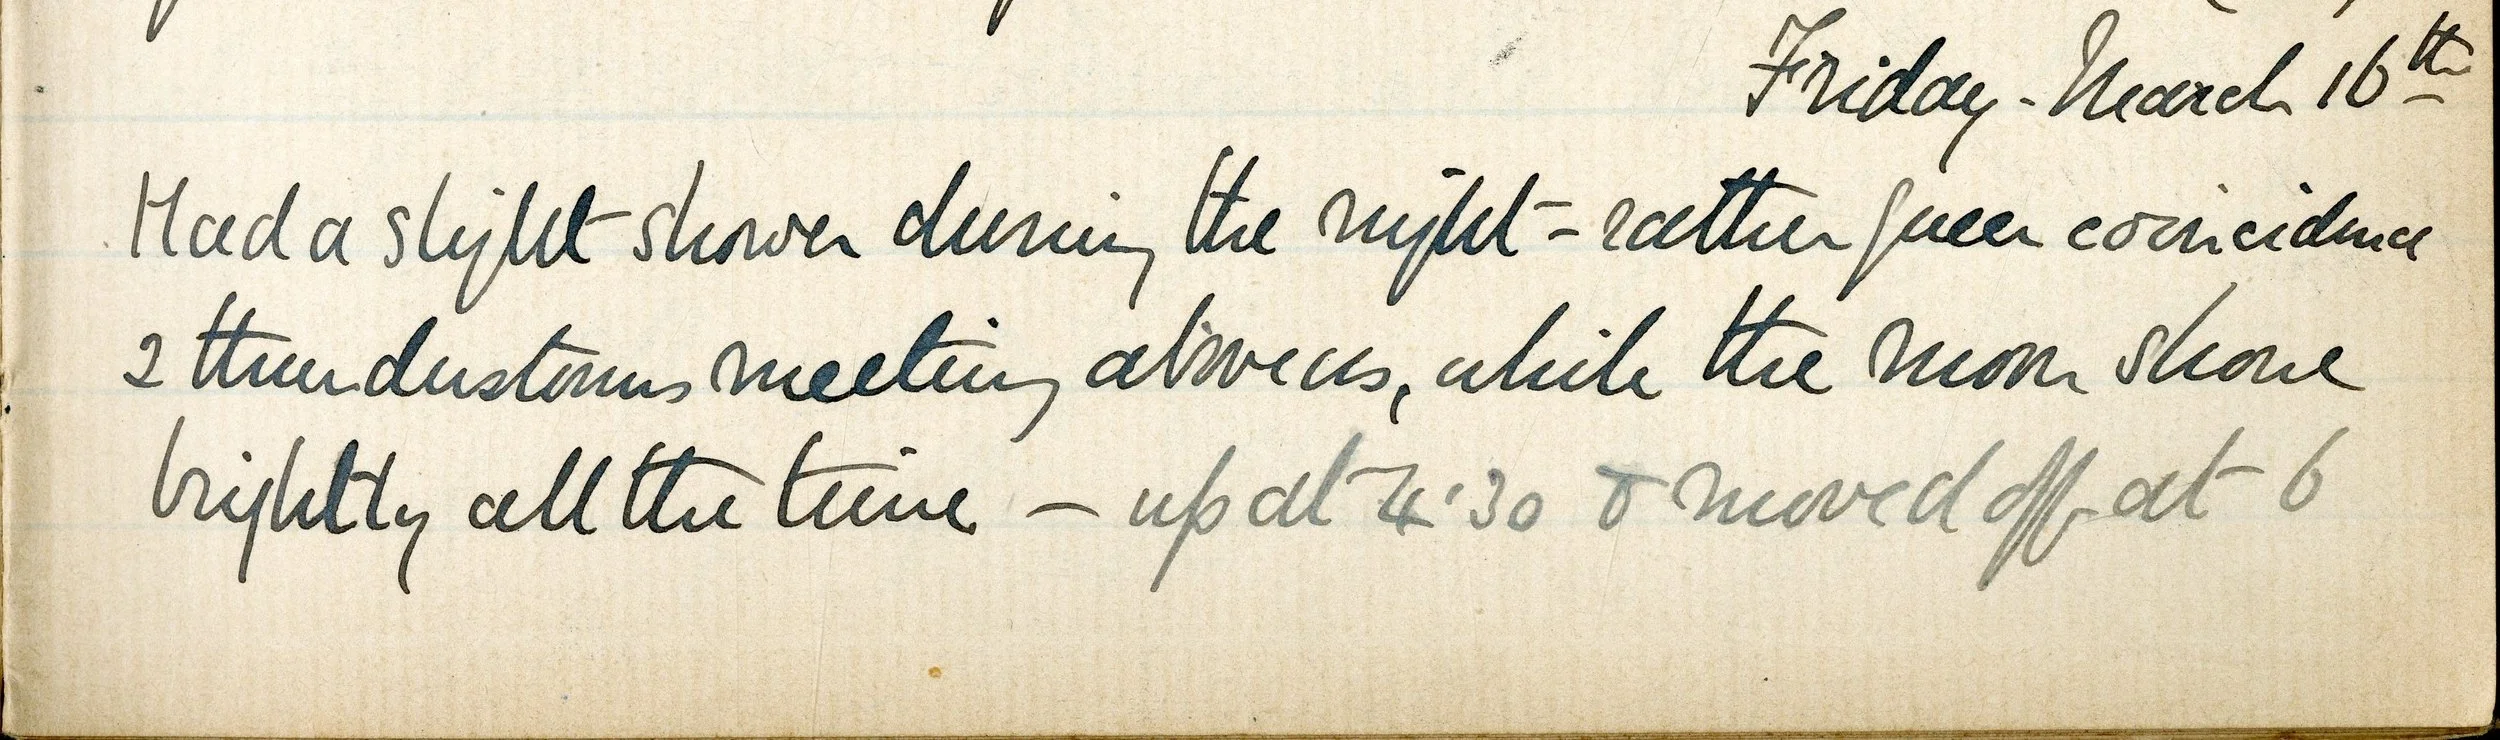 Friday - March 16th
Had a slight shower during the night - rather queer coincidence
2 thunderstorms meeting above us, while the moon shone
brightly all the time - up at 4.30 & moved off at 6